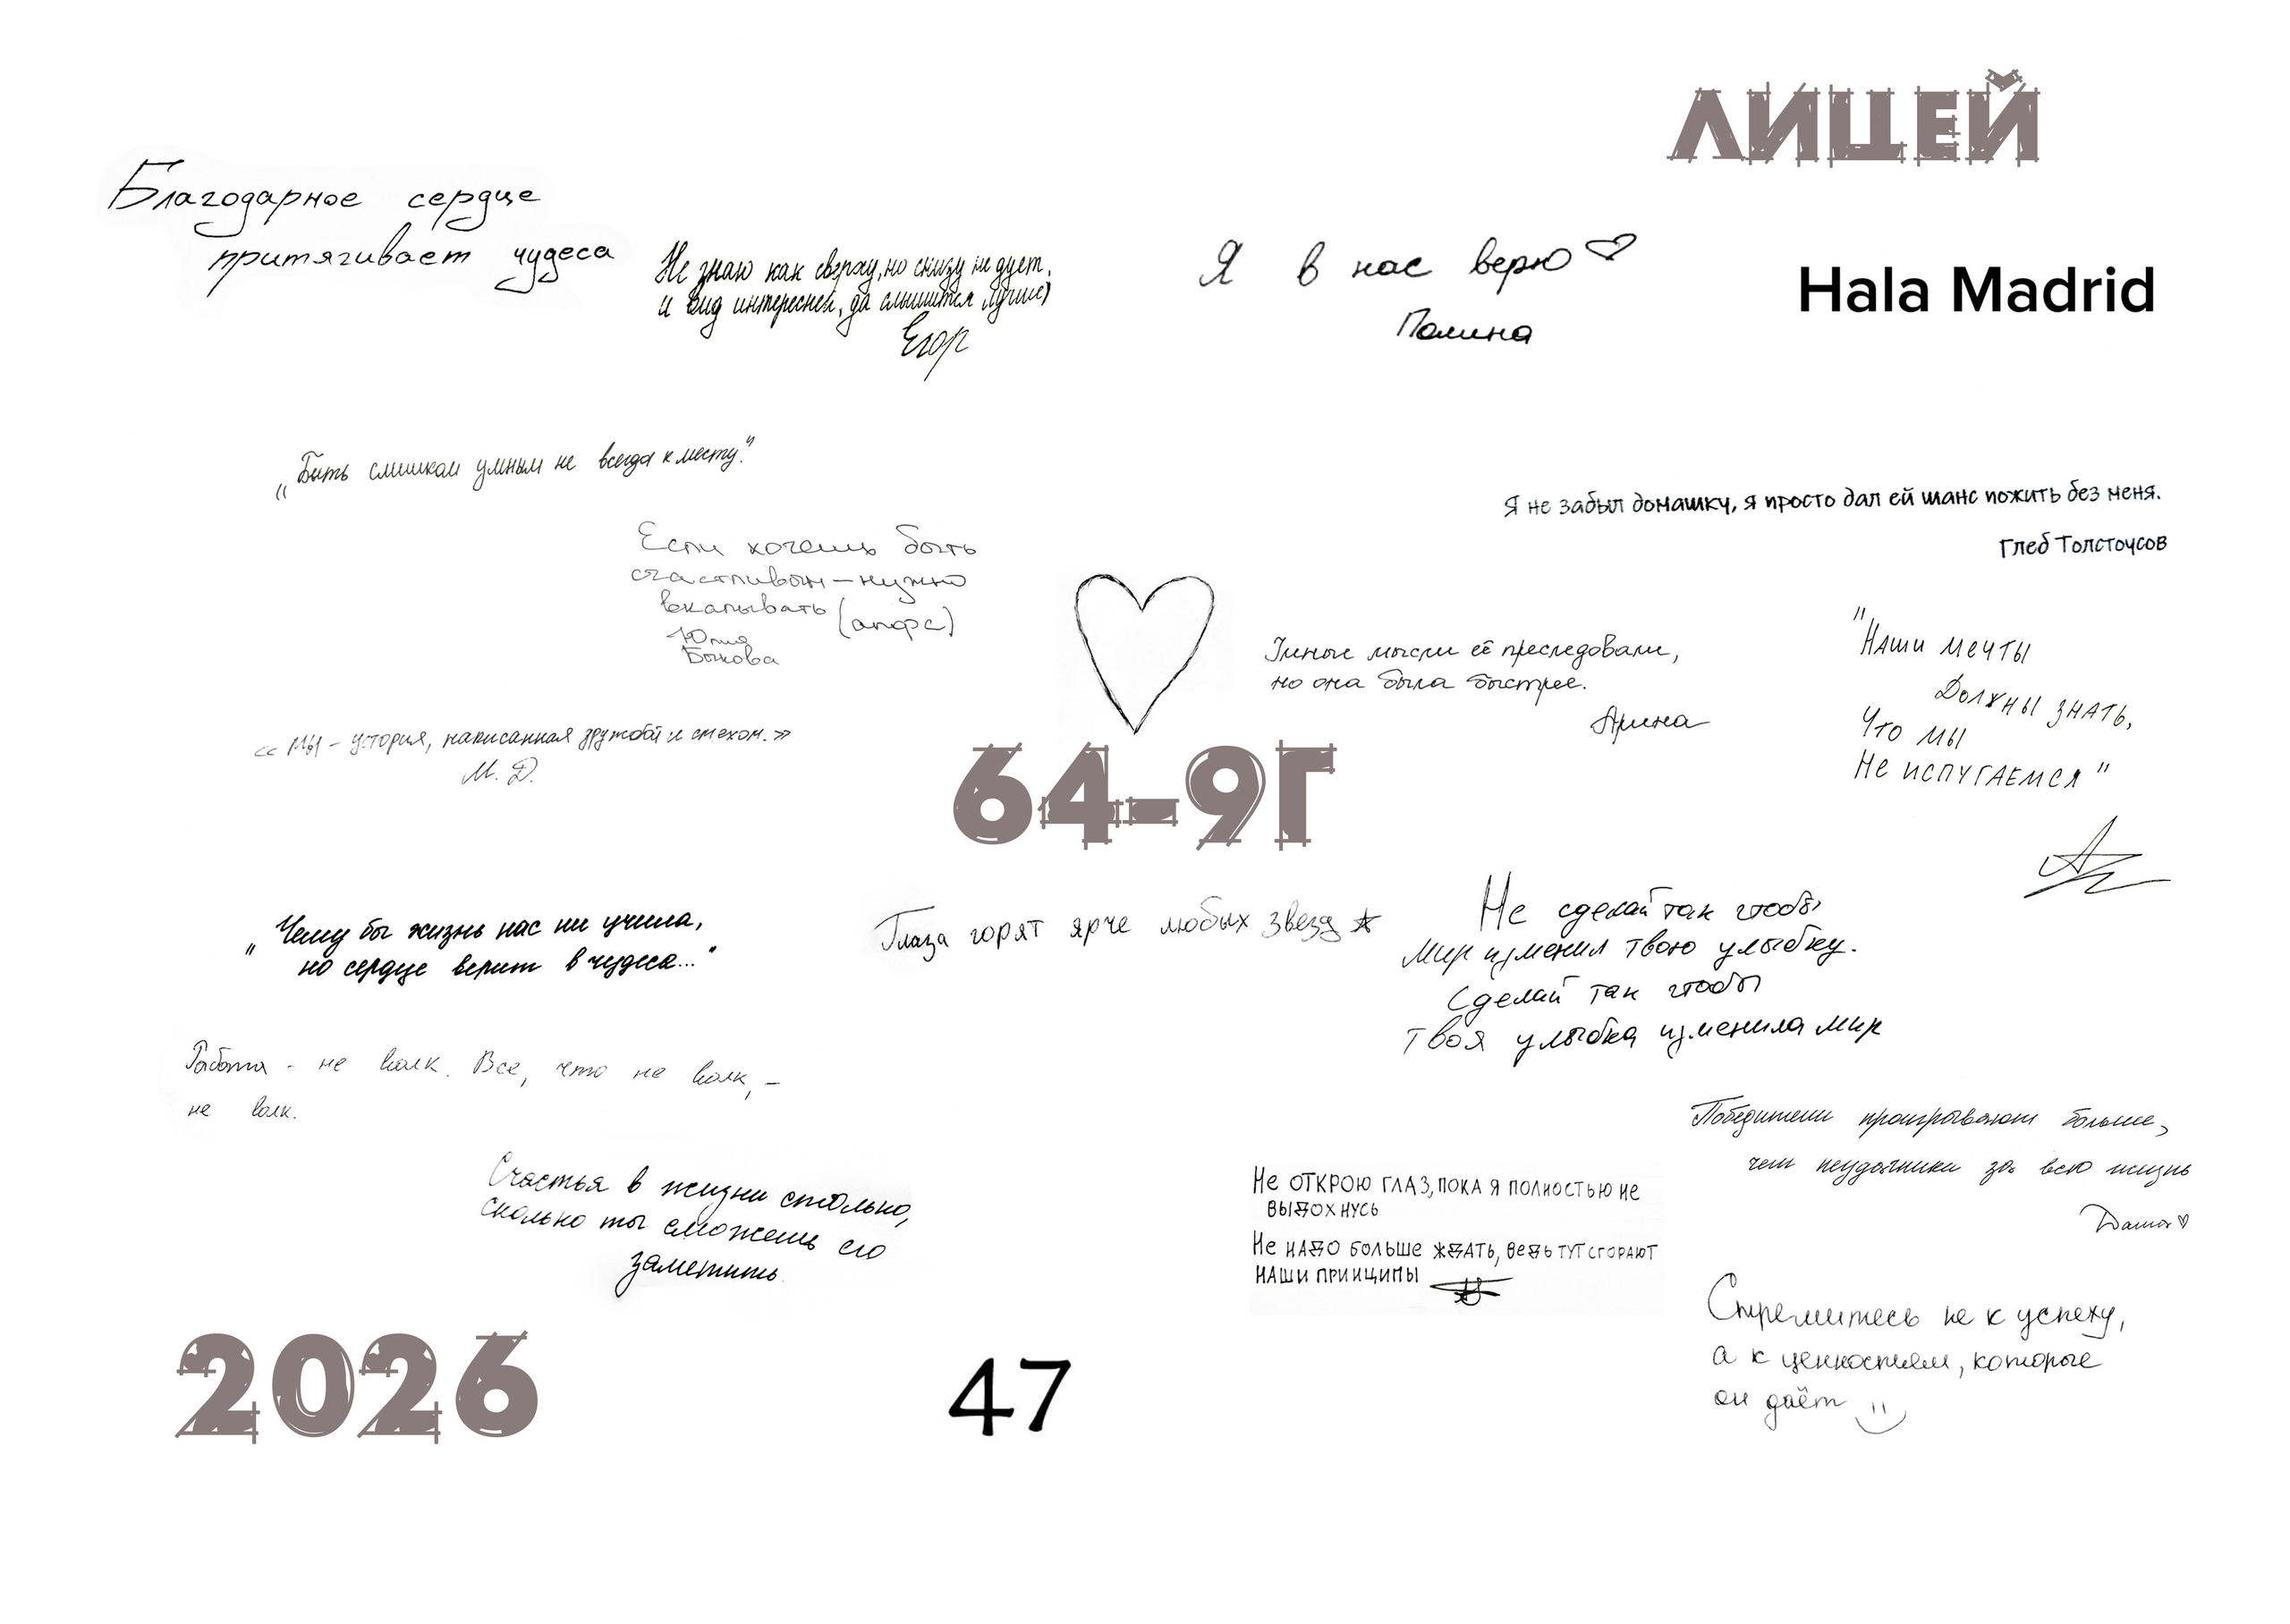 ЛИЦЕЙ
Благодарное сердце
притягивает чудеса
Не знаю как сверху, но снизу не дует,
и вид интересней, да слышится лучше)
Егор
Я в нас верю
Полина
Hala Madrid
„Быть слишком умным не всегда к месту."
Если хочешь быть
счастливым – нужно
вкалывать (апорс)
Юлия
Быкова
Я не забыл домашку, я просто дал ей шанс пожить без меня.
Глеб Толстоусов
Умные мысли её преследовали,
но она была быстрее.
Арина
"Наши мечты
Должны знать,
Что мы
Не испугаемся"
«Мы – история, написанная дружбой и смехом.»
М. Д.
64-9Г
„Чему бы жизнь нас ни учила,
но сердце верит в чудеса..."
Глаза горят ярче любых звезд
Не сделай так чтобы
мир изменил твою улыбку.
Сделай так чтобы
твоя улыбка изменила мир
Работа - не волк. Все, что не волк, –
не волк.
Победители проигрывают больше,
чем неудачники за всю жизнь
Даша
Счастья в жизни столько,
сколько ты сможешь его
заметить
Не открою глаз, пока я полностью не
выдохнусь
Не надо больше ждать, ведь тут сгорают
наши принципы
Стремитесь не к успеху,
а к ценностям, которые
он даёт
2026
47